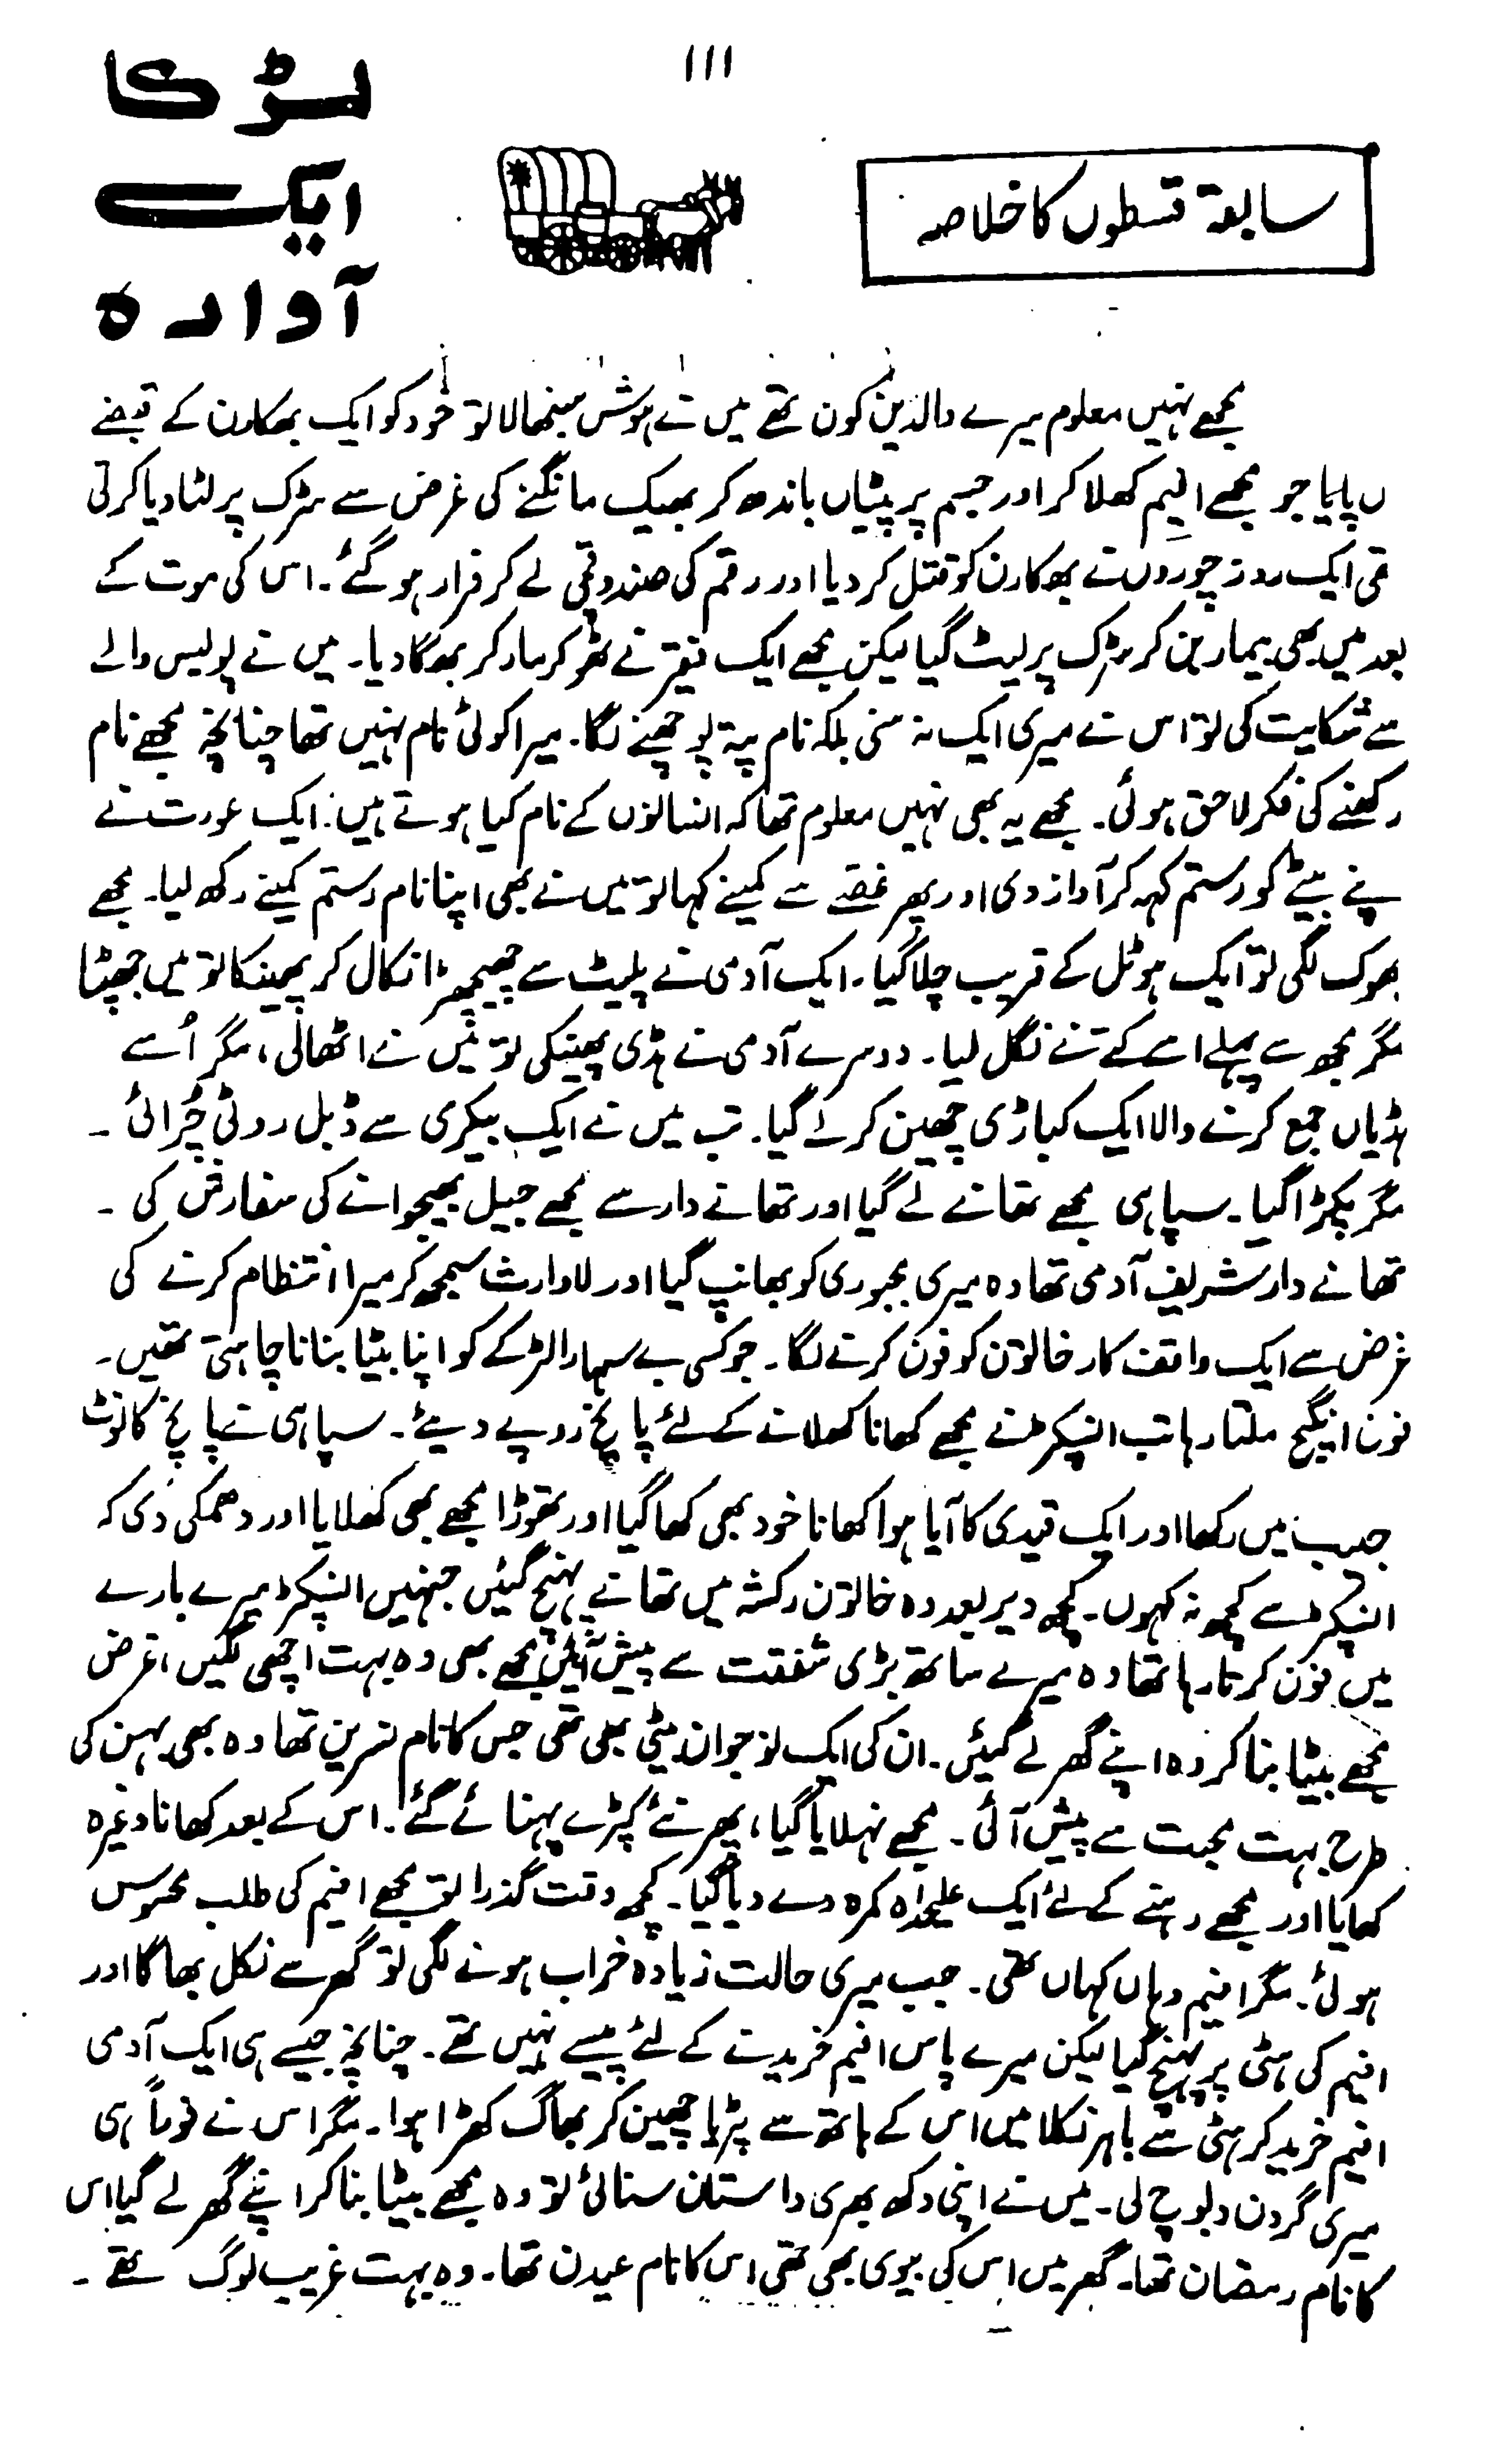 ۱۱۱
لڑکا
ایک
آوارہ
سابقہ قسطوں کا خلاصہ
مجھے نہیں معلوم میرے والدین کون تھے میں نے ہوش سنبھالا تو خود کو ایک بھکارن کے قبضے
ں پایا جو مجھے افیم کھلا کر اور جسم پر پٹیاں باندھ کر بھیک مانگنے کی غرض سے سڑک پر لٹا دیا کرتی
تھی ایک روز چوروں نے بھکارن کو قتل کر دیا اور رقم کی صندوقچی لے کر فرار ہو گئے۔ اس کی موت کے
بعد میں بھی بیمار بن کر سڑک پر لیٹ گیا لیکن مجھے ایک فقیر نے ٹھوکر مار کر بھگا دیا۔ میں نے پولیس والے
سے شکایت کی تو اس نے میری ایک نہ سنی بلکہ نام پتہ پوچھنے لگا۔ میرا کوئی نام نہیں تھا چنانچہ مجھے نام
رکھنے کی فکر لاحق ہوئی۔ مجھے یہ بھی نہیں معلوم تھا کہ انسانوں کے نام کیا ہوتے ہیں۔ ایک عورت نے
پنے بیٹے کو رستم کہہ کر آواز دی اور پھر غصے سے کمینے کہا تو میں نے بھی اپنا نام رستم کمینے رکھ لیا۔ مجھے
بھوک لگی تو ایک ہوٹل کے قریب چلا گیا۔ ایک آدمی نے پلیٹ سے چھیچھڑا نکال کر پھینکا تو میں جھپٹا
مگر مجھ سے پہلے اسے کتے نے نگل لیا۔ دوسرے آدمی نے ہڈی پھینکی تو میں نے اٹھالی، مگر اُسے
ہڈیاں جمع کرنے والا ایک کباڑی چھین کر لے گیا۔ تب میں نے ایک بیکری سے ڈبل روٹی چُرائی۔
مگر پکڑا گیا۔ سپاہی مجھے تھانے لے گیا اور تھانے دار سے مجھے جیل بھیجوانے کی سفارش کی۔
تھانے دار شریف آدمی تھا وہ میری مجبوری کو بھانپ گیا اور لاوارث سمجھ کر میرا انتظام کرنے کی
غرض سے ایک واقف کار خاتون کو فون کرنے لگا۔ جو کسی بے سہارا لڑکے کو اپنا بیٹا بنانا چاہتی تھیں۔
فون انگیج ملتا رہا تب انسپکٹر نے مجھے کھانا کھلانے کے لئے پانچ روپے دیئے۔ سپاہی نے پانچ کا نوٹ
جیب میں رکھا اور ایک قیدی کا آیا ہوا کھانا خود بھی کھا گیا اور تھوڑا مجھے بھی کھلایا اور دھمکی دی کہ
انسپکٹر سے کچھ نہ کہوں۔ کچھ دیر بعد وہ خاتون رکشہ میں تھانے پہنچ گئیں جنہیں انسپکٹر میرے بارے
میں فون کرتا رہا تھا وہ میرے ساتھ بڑی شفقت سے پیش آئیں مجھے بھی وہ بہت اچھی لگیں، غرض
مجھے بیٹا بنا کر وہ اپنے گھر لے گئیں۔ ان کی ایک نوجوان بیٹی بھی تھی جس کا نام نسرین تھا وہ بھی بہن کی
طرح بہت محبت سے پیش آئی۔ مجھے نہلایا گیا، پھر نئے کپڑے پہنائے گئے۔ اس کے بعد کھانا وغیرہ
کھایا اور مجھے رہنے کے لئے ایک علیحدہ کمرہ دے دیا گیا۔ کچھ وقت گذرا تو مجھے افیم کی طلب محسوس
ہوئی۔ مگر افیم وہاں کہاں تھی۔ جب میری حالت زیادہ خراب ہونے لگی تو گھر سے نکل بھاگا اور
افیم کی ہٹی پر پہنچ گیا لیکن میرے پاس افیم خریدنے کے لئے پیسے نہیں تھے۔ چنانچہ جیسے ہی ایک آدمی
افیم خرید کر ہٹی سے باہر نکلا میں اس کے ہاتھ سے پڑیا چھین کر بھاگ کھڑا ہوا۔ مگر اس نے فوراً ہی
میری گردن دبوچ لی۔ میں نے اپنی دکھ بھری داستان سنائی تو وہ مجھے بیٹا بنا کر اپنے گھر لے گیا اس
کا نام رمضان تھا۔ گھر میں اس کی بیوی بھی تھی اس کا نام عیدن تھا۔ وہ بہت غریب لوگ تھے۔